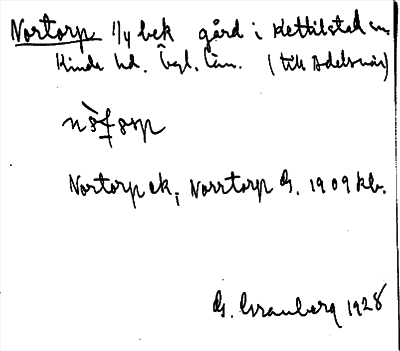 Nortorp 1/4 bek gård i Kettilstad sn.
Kinda hd. Ögl. län. (till Adelsnäs)
Nortorp ek, Norrtorp G. 1909 kb.
G. Granberg 1928